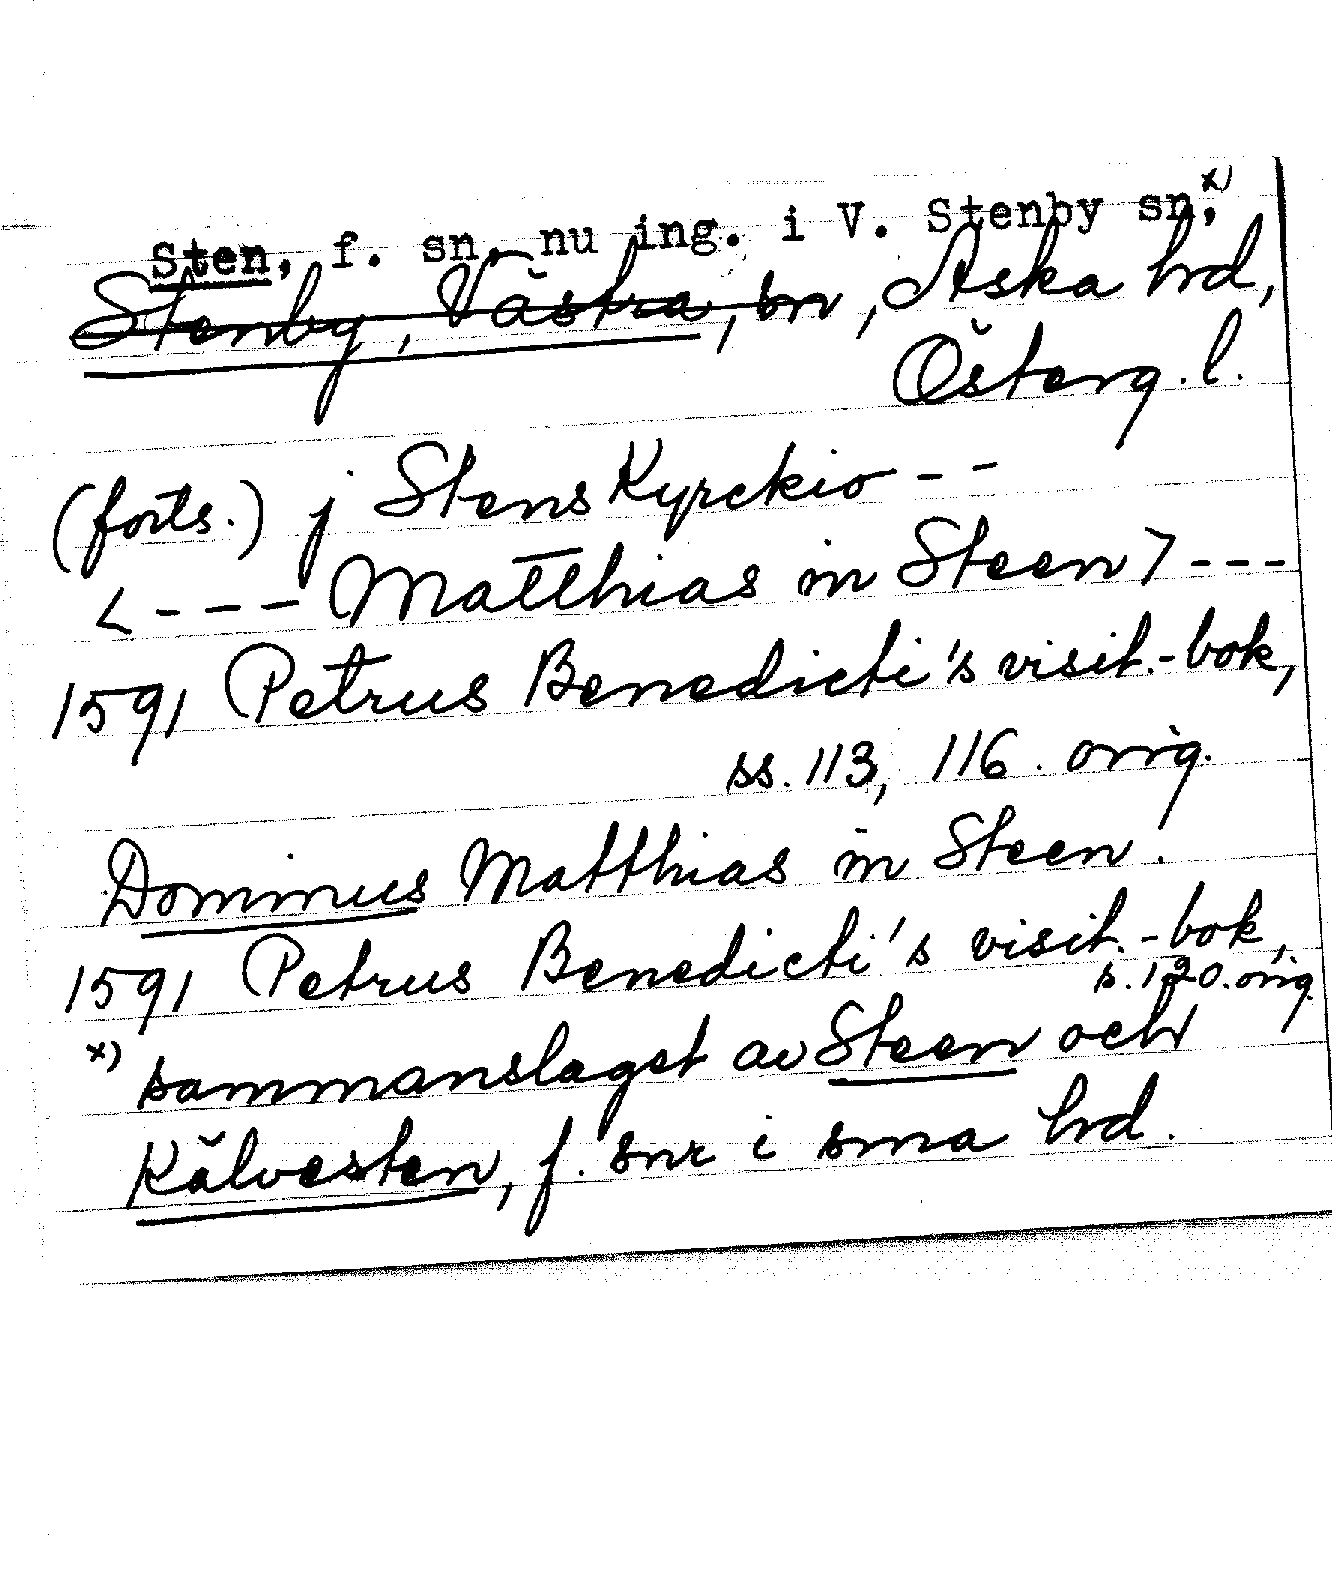 Sten, f. sn. nu ing. i V. Stenby sn, x)
Stenby, Västra, sn, Aska hrd,
Österg. l.
(forts.) j Stens Kyrckio - -
< - - - Matthias in Steen > - - -
1591 Petrus Benedicti's visit.-bok,
ss. 113, 116. orig.
Dominus Matthias in Steen.
1591 Petrus Benedicti's visit.-bok,
s. 120. orig.
x) sammanslaget av Steen och
Kälvesten, f. snr i sma hrd.